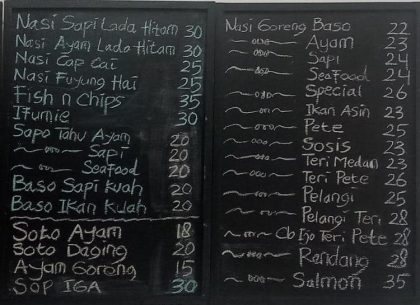 Nasi Sapi Lada Hitam 30
Nasi Ayam Lada Hitam 30
Nasi Cap Cai 25
Nasi Fuyung Hai 25
Fish n Chips 35
Ifumie 30
Sapo Tahu Ayam 20
~ ooo ~ Sapi 20
~ ooo ~ Seafood 20
Baso Sapi Kuah 20
Baso Ikan Kuah 20
Soto Ayam 18
Soto Daging 20
Ayam Goreng 15
SOP IGA 30
Nasi Goreng Baso 22
~ ooo ~ Ayam 23
~ ooo ~ Sapi 24
~ ooo ~ Seafood 24
~ ooo ~ Special 26
~ ooo ~ Ikan Asin 23
~ ooo ~ Pete 25
~ ooo ~ Sosis 23
~ ooo ~ Teri Medan 23
~ ooo ~ Teri Pete 26
~ ooo ~ Pelangi 25
~ ooo ~ Pelangi Teri 28
~ ooo ~ Cb Ijo Teri Pete 28
~ ooo ~ Rendang 28
~ ooo ~ Salmon 35